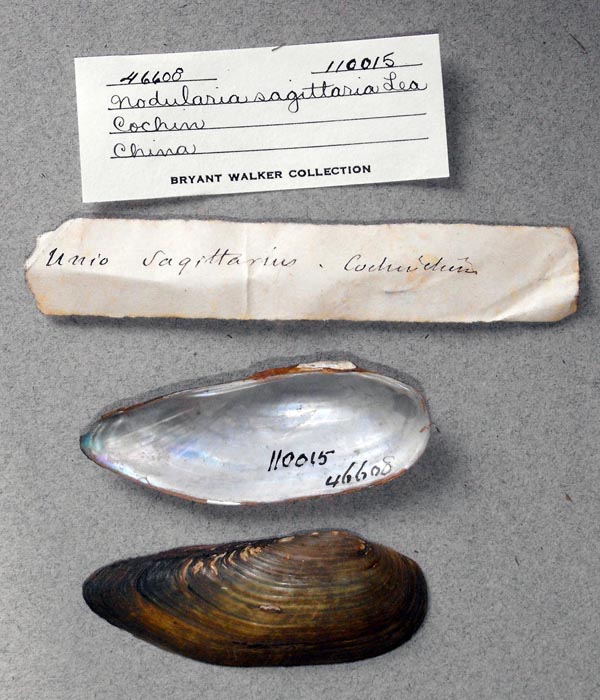 46608 110015
Nodularia sagittaria Lea
Cochin
China
BRYANT WALKER COLLECTION
Unio sagittarius. Cochinchin
110015
46608